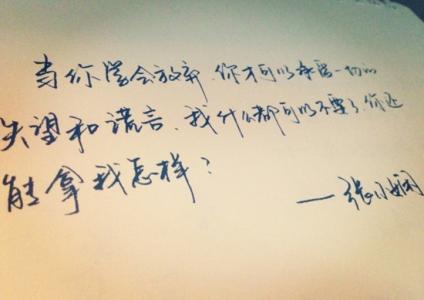 当你学会放弃、你才可以承受一切的
失望和谎言、我什么都可以不要了、你还
能拿我怎样？
——张小娴